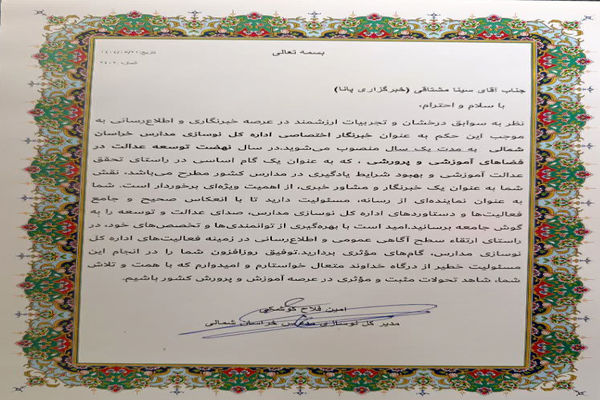 بسمه تعالی
تاریخ:
جناب آقای سینا مشتاقی (خبرگزاری پانا)
با سلام و احترام،
نظر به سوابق درخشان و تجربیات ارزشمند در عرصه خبرنگاری و اطلاع‌رسانی به
موجب این حکم به عنوان خبرنگار اختصاصی اداره کل نوسازی مدارس خراسان
شمالی به مدت یک سال منصوب می‌شوید.در سال نهضت توسعه عدالت در
فضاهای آموزشی و پرورشی ، که به عنوان یک گام اساسی در راستای تحقق
عدالت آموزشی و بهبود شرایط یادگیری در مدارس کشور مطرح می‌باشد، نقش
شما به عنوان یک خبرنگار و مشاور خبری، از اهمیت ویژه‌ای برخوردار است. شما
به عنوان نماینده‌ای از رسانه، مسئولیت دارید تا با انعکاس صحیح و جامع
فعالیت‌ها و دستاوردهای اداره کل نوسازی مدارس، صدای عدالت و توسعه را به
گوش جامعه برسانید.امید است با بهره‌گیری از توانمندی‌ها و تخصص‌های خود، در
راستای ارتقاء سطح آگاهی عمومی و اطلاع‌رسانی در زمینه فعالیت‌های اداره کل
نوسازی مدارس، گام‌های مؤثری بردارید.توفیق روزافزون شما را در انجام این
مسئولیت خطیر از درگاه خداوند متعال خواستارم و امیدوارم که با همت و تلاش
شما، شاهد تحولات مثبت و مؤثری در عرصه آموزش و پرورش کشور باشیم.
امین فلاح کوشکی
مدیر کل نوسازی مدارس خراسان شمالی